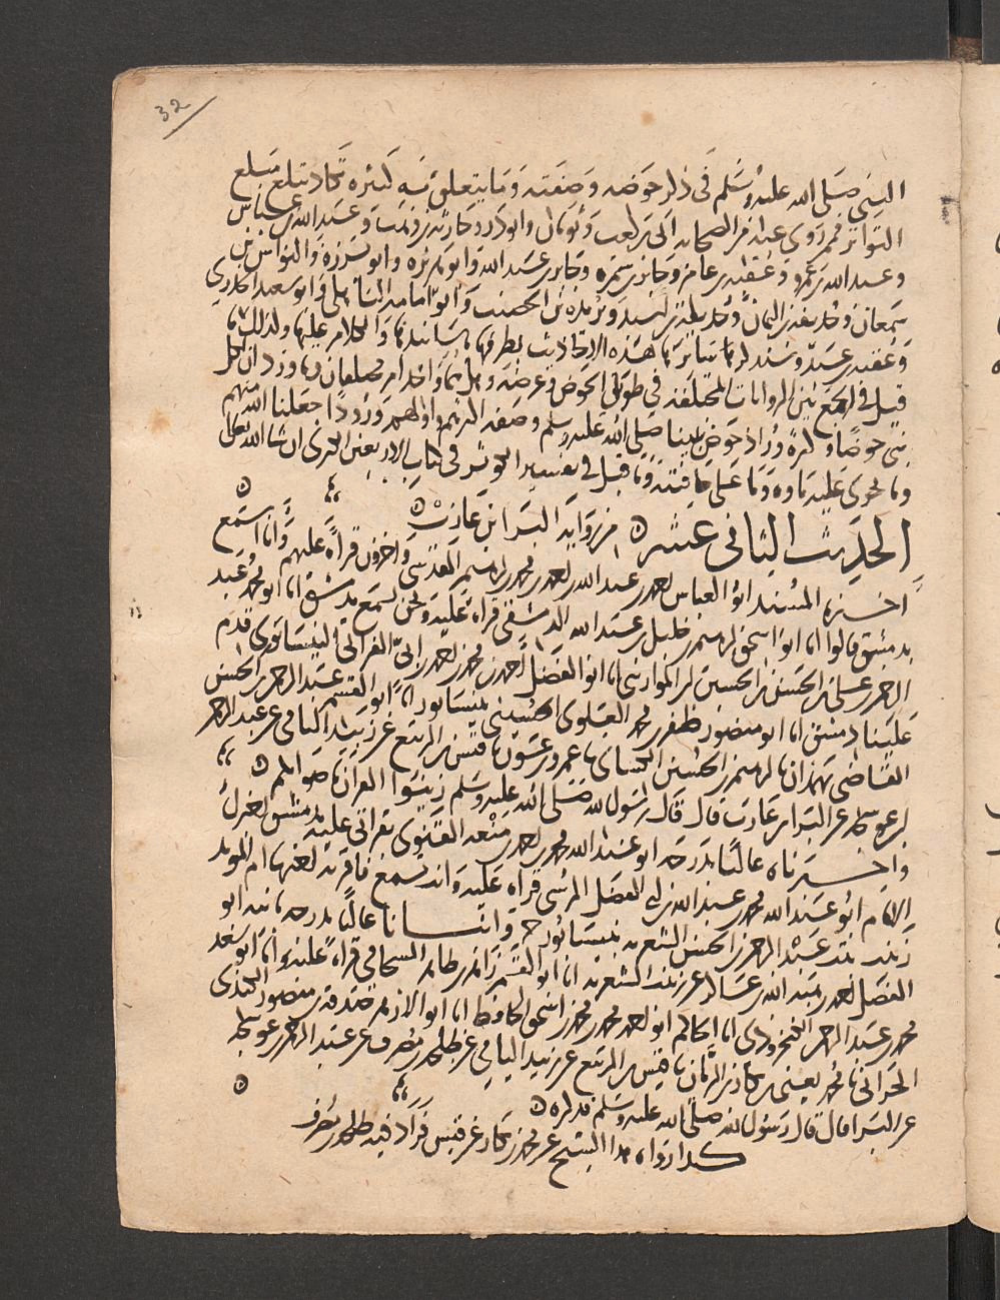 32
النبي صلى الله عليه وسلم في ذكر حوضه وصفته وما يتعلق به كثيرة تكاد تبلغ مبلغ
التواتر فممن روى عنه من الصحابة ابي بن كعب وثوبان وابو ذر وحارثة بن وهب وعبد الله بن عباس
وعبد الله بن عمرو وعقبة بن عامر وجابر بن سمرة وجابر بن عبد الله وابو هريرة وابو برزة والنواس بن
سمعان وحذيفة بن اليمان وحذيفة بن اسيد وبريدة بن الحصيب وابو امامة الباهلي وابو سعيد الخدري
وعقبة بن عبد وسنذكر ما تيسر من هذه الاحاديث بطرقها باسانيدها والكلام عليها ولذلك ما
قيل في الجمع بين الروايات المختلفة في طول الحوض وعرضه وما ورد ان لكل
نبي حوضا وكثرة وراد حوض نبينا صلى الله عليه وسلم وصفة اولهم ورودا جعلنا الله منهم
وما يجري عليه ماؤه وما على حافتيه وما قيل في تفسير الكوثر في كتاب الاربعين الكبرى ان شا الله تعالى
الحديث الثاني عشر من رواية البرا بن عازب
اخبرنا المسند ابو العباس احمد بن عبد الله بن احمد بن محمد بن ابراهيم المقدسي واخرون قراة عليهم وانا اسمع
بدمشق قالوا انا ابو اسحق ابراهيم بن خليل بن عبد الله الدمشقي قراة عليه ونحن نسمع بدمشق انا ابو محمد عبد
الرحمن بن علي بن الحسن بن الحسين انا ابو الفضل احمد بن محمد بن احمد الفراتي النيسابوري قدم
علينا دمشق انا ابو منصور ظفر بن محمد العلوي الحسيني بنيسابور انا ابو القسم عبد الرحمن بن الحسن
القاضي بهمذان نا ابراهيم بن الحسين الكسائي نا عمرو بن عون نا قيس بن الربيع عن زبيد اليامي عن عبد الرحمن
ابن عوسجة عن البرا بن عازب قال قال رسول الله صلى الله عليه وسلم زينوا القران باصواتكم
واخبرناه عاليا بدرجة ابو عبد الله محمد بن احمد القنوي بقراتي عليه بدمشق اخبرك
الامام ابو عبد الله محمد بن عبد الله بن ابي الفضل المرسي قراة عليه وانت تسمع فاقر به اخبرتنا ام المويد
زينب بنت عبد الرحمن بن الحسن الشعرية بنيسابور ح وانبانا عاليا بدرجة ثانية ابو
الفضل احمد بن هبة الله بن عساكر عن زينب الشعرية انا ابو القسم زاهر بن طاهر الشحامي قراة عليه انا ابو سعد
محمد بن عبد الرحمن الكنجروذي انا الحاكم ابو احمد محمد بن محمد بن اسحق الحافظ انا ابو الازهر صدقة بن منصور الكندي
الحراني نا محمد يعني بن بكار بن الريان نا قيس بن الربيع عن زبيد اليامي عن طلحة بن مصرف عن عبد الرحمن بن عوسجة
عن البرا قال قال رسول الله صلى الله عليه وسلم فذكره
كذا رواه هذا الشيخ عن محمد بن بكار عن قيس فزاد فيه طلحة بن مصرف